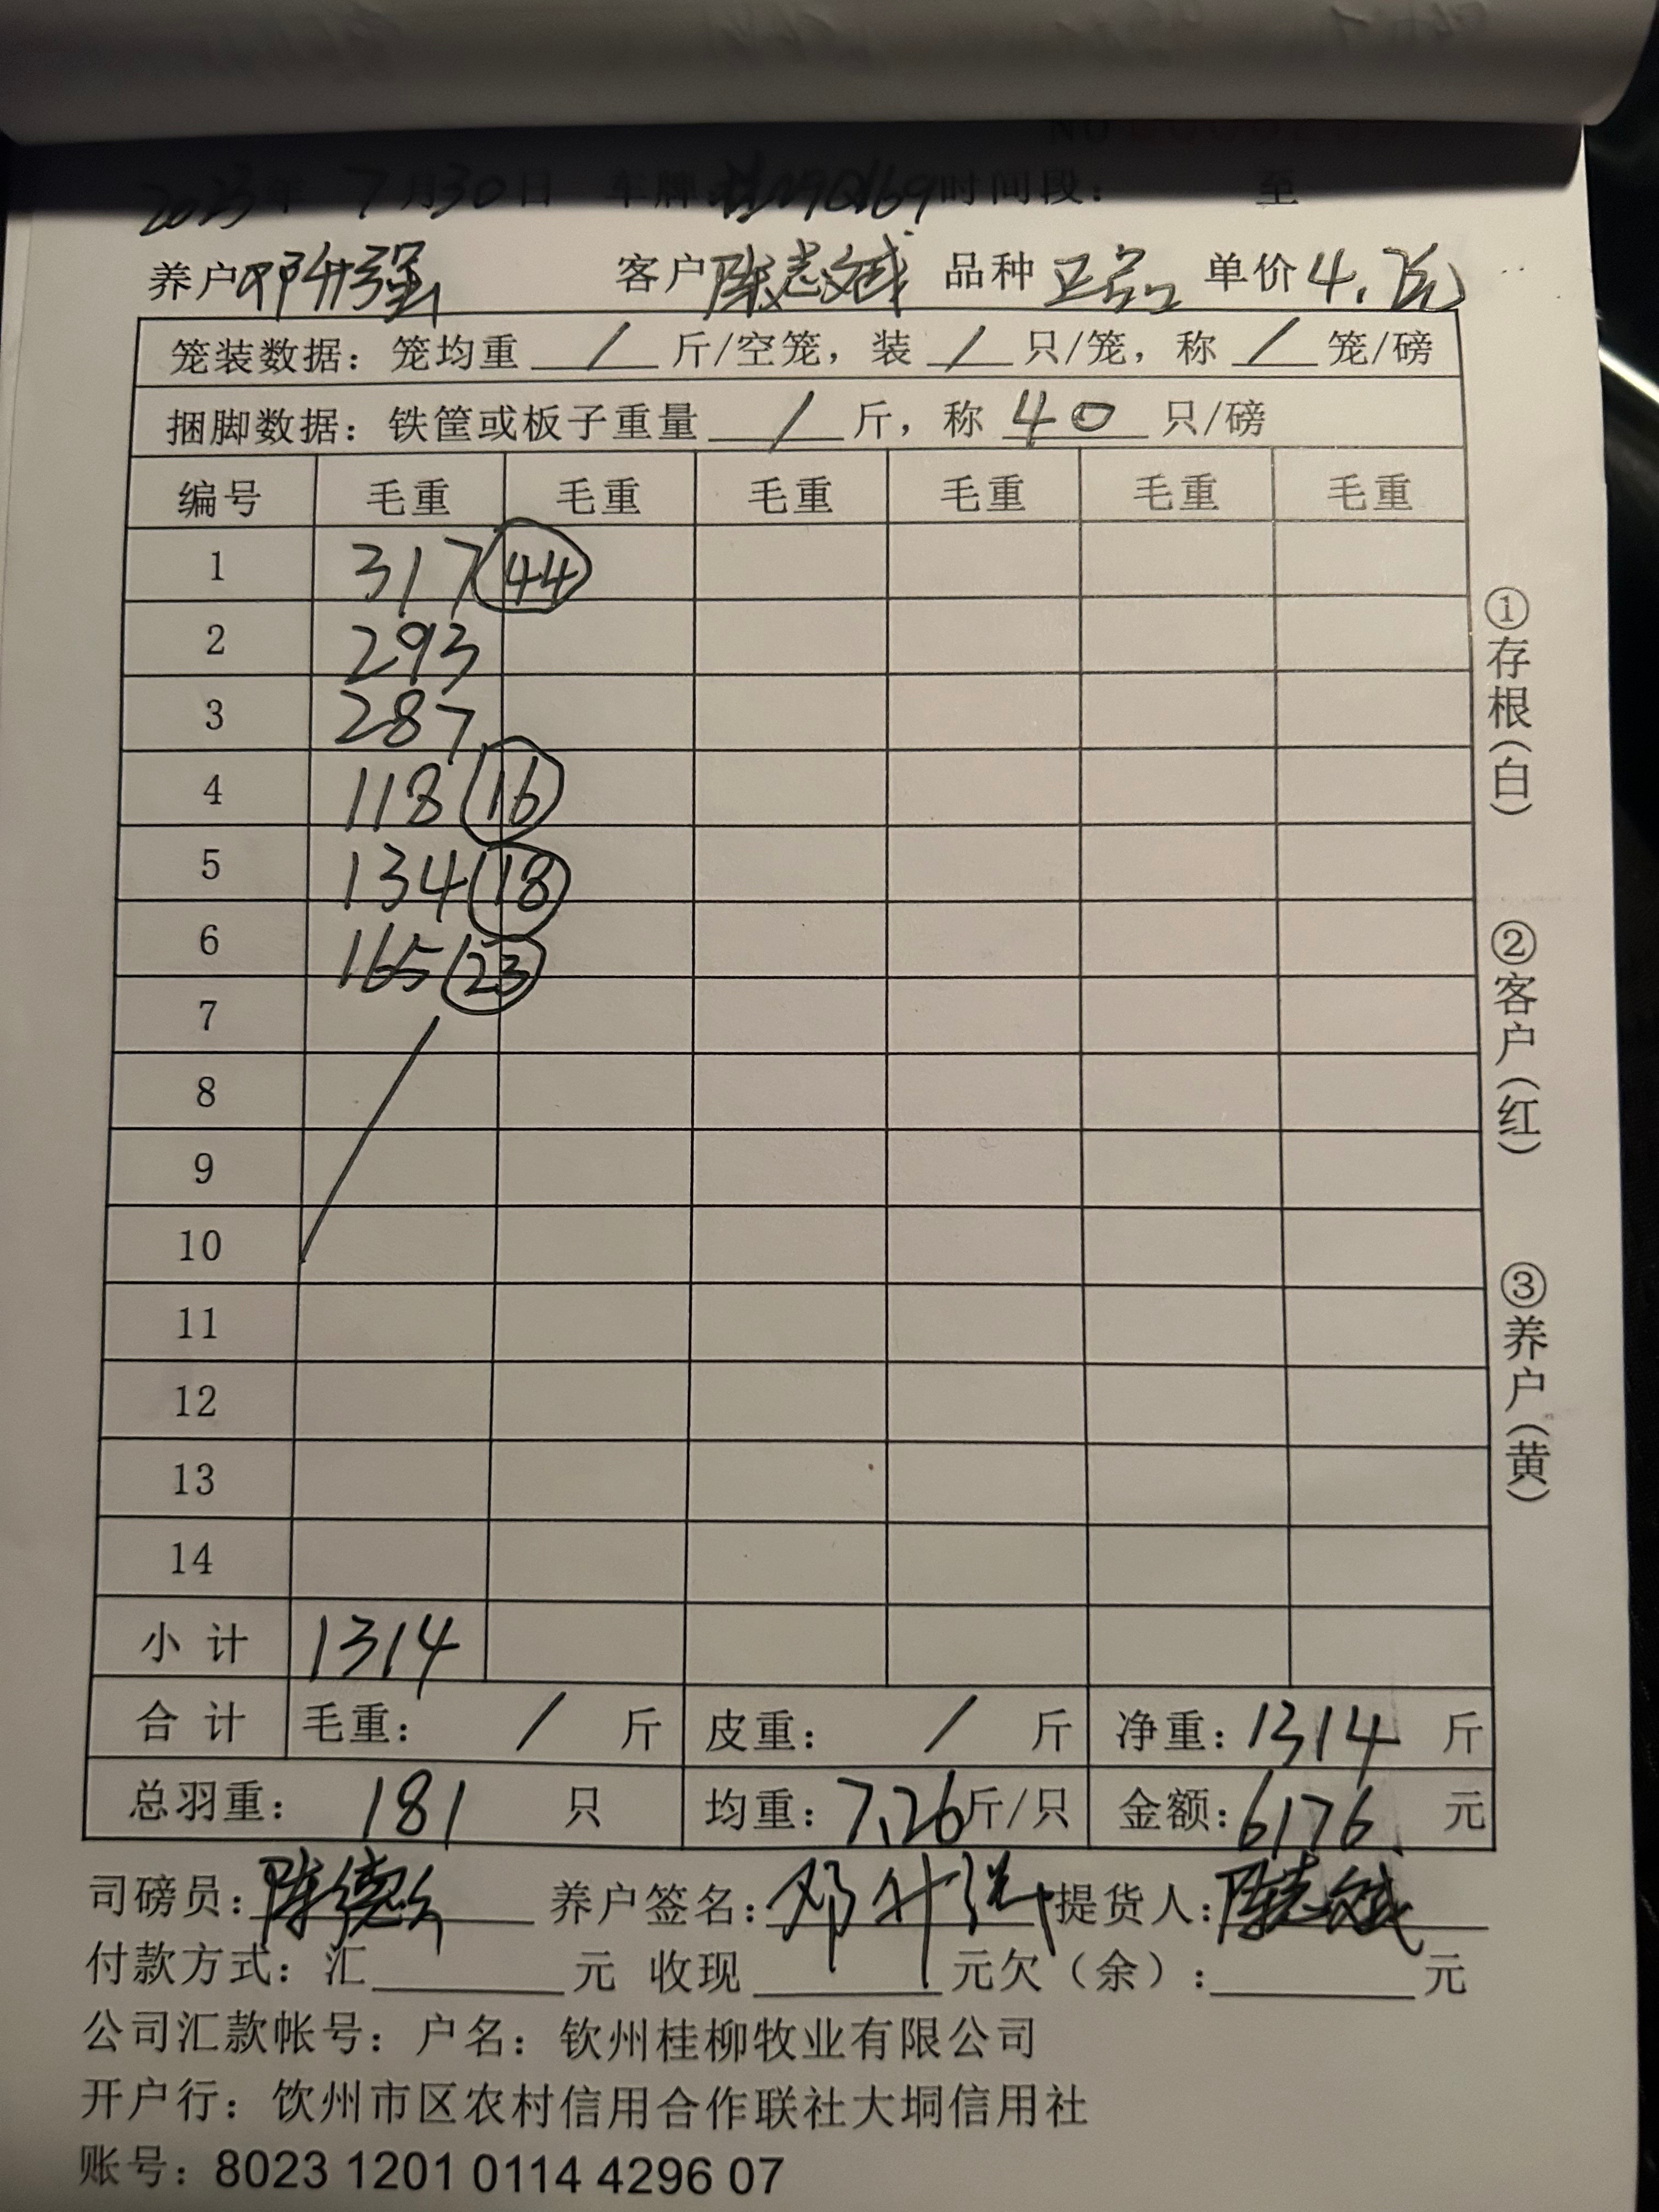 2023年 7月30日 车牌: 时间段: 至
养户 邓升强 客户 陈志斌 品种 正品 单价 4.7元
笼装数据: 笼均重 / 斤/空笼, 装 / 只/笼, 称 / 笼/磅
捆脚数据: 铁筐或板子重量 / 斤, 称 40 只/磅
编号 毛重 毛重 毛重 毛重 毛重 毛重
1 317 44
2 293
3 287
4 118 16
5 134 18
6 165 23
7
8
9
10
11
12
13
14
小计 1314
合计 毛重: / 斤 皮重: / 斤 净重: 1314 斤
总羽重: 181 只 均重: 7.26 斤/只 金额: 6176 元
司磅员: 陈德 养户签名: 邓升强 提货人: 陈志斌
付款方式: 汇 元 收现 元欠(余): 元
公司汇款帐号: 户名: 钦州桂柳牧业有限公司
开户行: 饮州市区农村信用合作联社大垌信用社
账号: 8023 1201 0114 4296 07
①存根(白)
②客户(红)
③养户(黄)